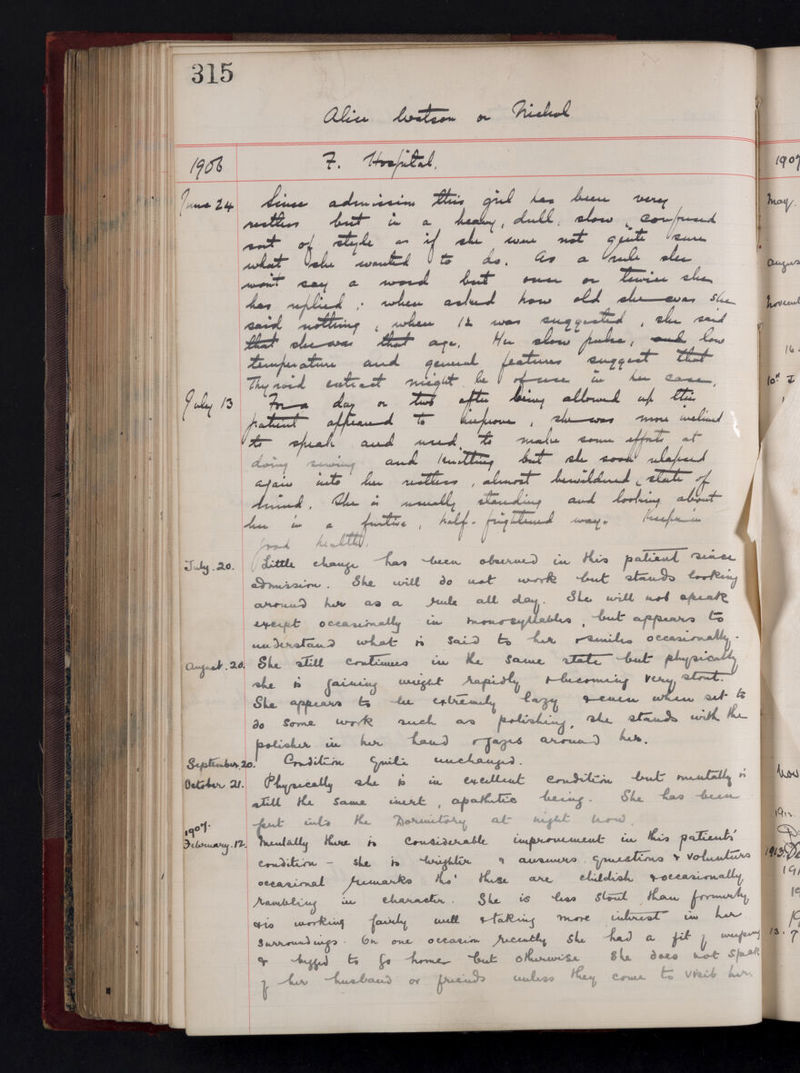 315
Alice Watson or Nichol
1906 F. Hospital.
June 24 Since admission this girl has been very
restless but in a heavy, dull, slow, confused
sort of style as if she were not quite sure
what she wanted to do. As a rule she
won't say a word but once or twice she
has replied; when asked how old she was she
said nothing, when 12 was suggested, she said
that she was that age. Her slow pulse, low
temperature and general features suggest that
Thyroid extract might be of use in her case.
July 13 For a day or two after being allowed up this
patient appeared to improve, she was more inclined
to speak and used to make some efforts at
doing sewing and knitting but she soon relapsed
again into her restless, almost bewildered, state of
mind. She is usually standing and looking about
her in a furtive, half-frightened way. Keeps in
good health.
July. 20. Little change has been observed in this patient since
admission. She will do not work but stands looking
around her as a rule all day. She will not speak
except occasionally in monosyllables, but appears to
understand what is said to her & smiles occasionally.
August. 20. She still continues in the same state but physically
she is gaining weight rapidly & becoming very stout.
She appears to be extremely lazy & even when set to
do some work such as polishing, she stands with the
polisher in her hand & gazes around her.
September 20. Condition quite unchanged.
October 21. Physically she is in excellent condition but mentally is
still the same inert, apathetic being. She has been
put into the Dormitory at night now.
1907.
February. 12. Mentally there is considerable improvement in this patients'
condition - she is brighter & answers questions & volunteers
occasional remarks tho' these are childish & occasionally
rambling in character. She is less stout than formerly
& is working fairly well & taking more interest in her
surroundings. On one occasion recently she had a fit of weeping
& begged to go home but otherwise she does not speak
of her husband or friends unless they come to visit her.
1907
May.